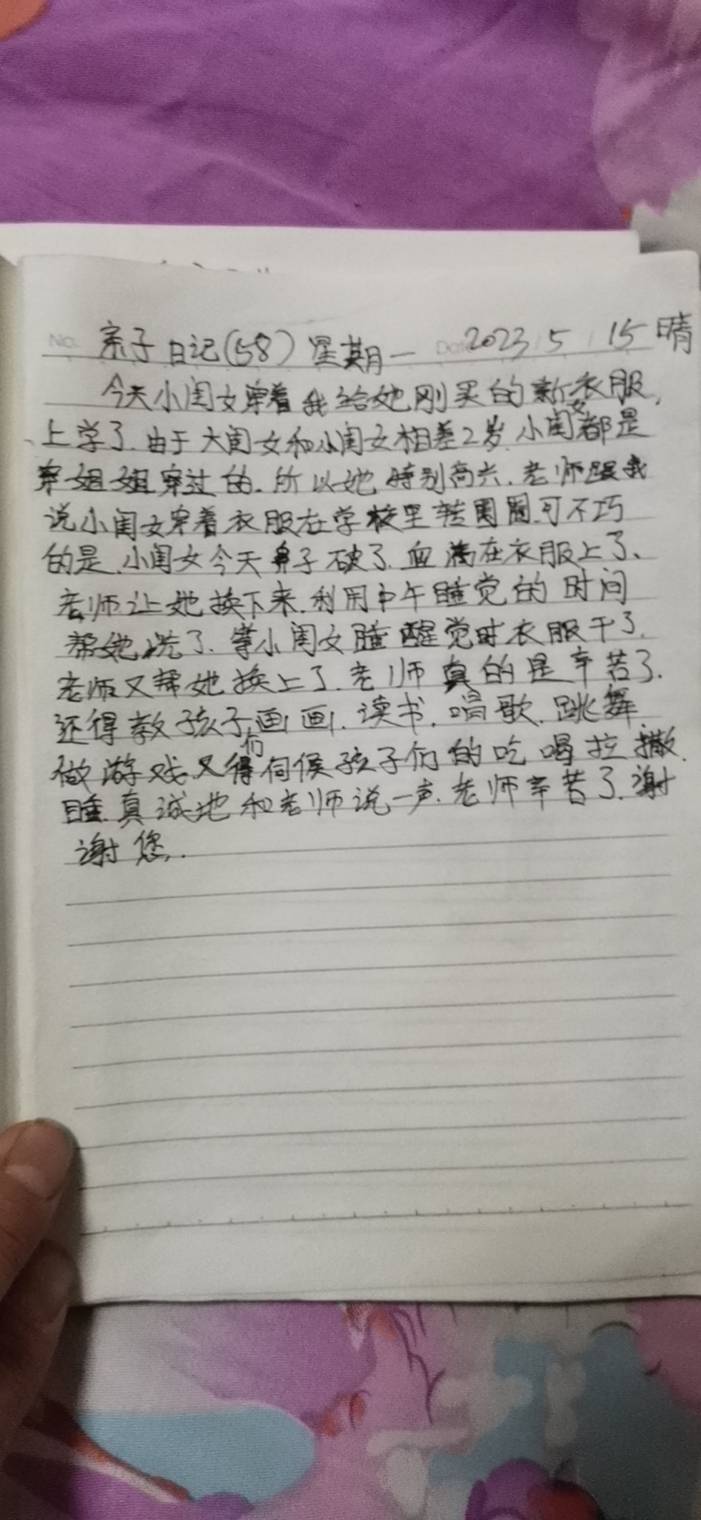 亲子日记(58) 星期一 2023 5 15 晴
今天小闺女穿着我给她刚买的新衣服,
上学了.由于大闺女和小闺女相差2岁.小闺女都是
穿姐姐穿过的.所以她特别高兴.老师跟我
说小闺女穿着衣服在学校里转圈圈.可不巧
的是.小闺女今天鼻子破了.血滴在衣服上了、
老师让她换下来.利用中午睡觉的时间
帮她洗了.等小闺女睡醒觉时衣服干了.
老师又帮她换上了.老师真的是辛苦了.
还得教孩子们画画.读书.唱歌.跳舞.
做游戏又得伺候孩子们的吃喝拉撒
睡.真诚地和老师说一声.老师辛苦了.谢
谢您.